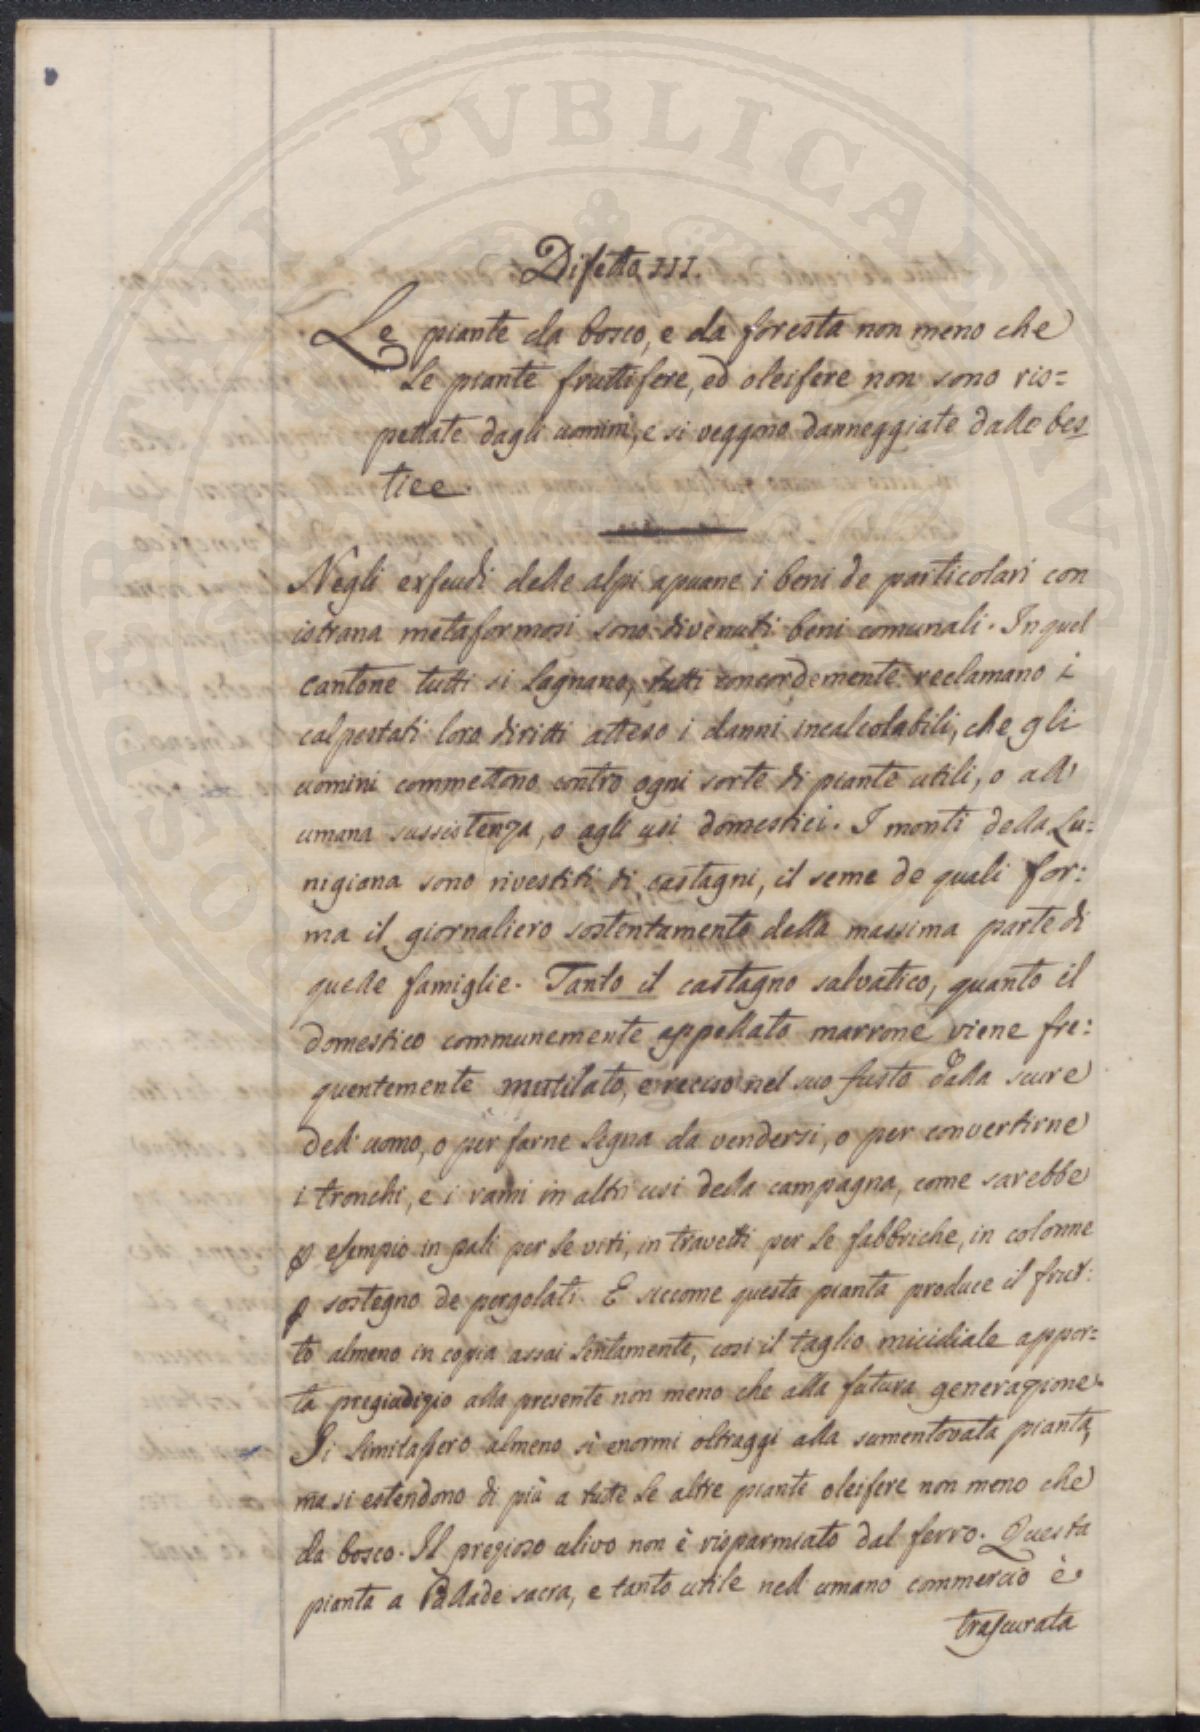 Difetto III.
Le piante da bosco, e da foresta non meno che
le piante fruttifere, ed oleifere non sono ris=
pettate dagli uomini, e si veggono danneggiate dalle bes=
tiee.
Negli exfeudi delle alpi apuane i beni de particolari con
istrana metaformosi sono divenuti beni comunali. In quel
cantone tutti si lagnano, tutti concordemente reclamano i
calpestati loro diritti atteso i danni incalcolabili, che gli
uomini commettono contro ogni sorte di piante utili, o all'
umana sussistenza, o agli usi domestici. I monti della Lu=
nigiana sono rivestiti di castagni, il seme de quali for=
ma il giornaliero sostentamento della massima parte di
quelle famiglie. Tanto il castagno salvatico, quanto il
domestico communemente appellato marrone viene fre=
quentemente mutilato, e reciso nel suo fusto dalla scure
dell' uomo, o per farne legna da vendersi, o per convertirne
i tronchi, e i rami in altri usi della campagna, come sarebbe
p esempio in pali per le viti, in travetti per le fabbriche, in colonne
p sostegno de pergolati. E siccome questa pianta produce il frut=
to almeno in copia assai lentamente, così il taglio micidiale appor=
ta pregiudizio alla presente non meno che alla futura generazione.
Si limitassero almeno sì enormi oltraggi alla sumentovata pianta,
ma si estendono di più a tutte le altre piante oleifere non meno che
da bosco. Il prezioso ulivo non è risparmiato dal ferro. Questa
pianta a Pallade sacra, e tanto utile nell' umano commercio è
trascurata
PROSPERITATI PVBLICAE